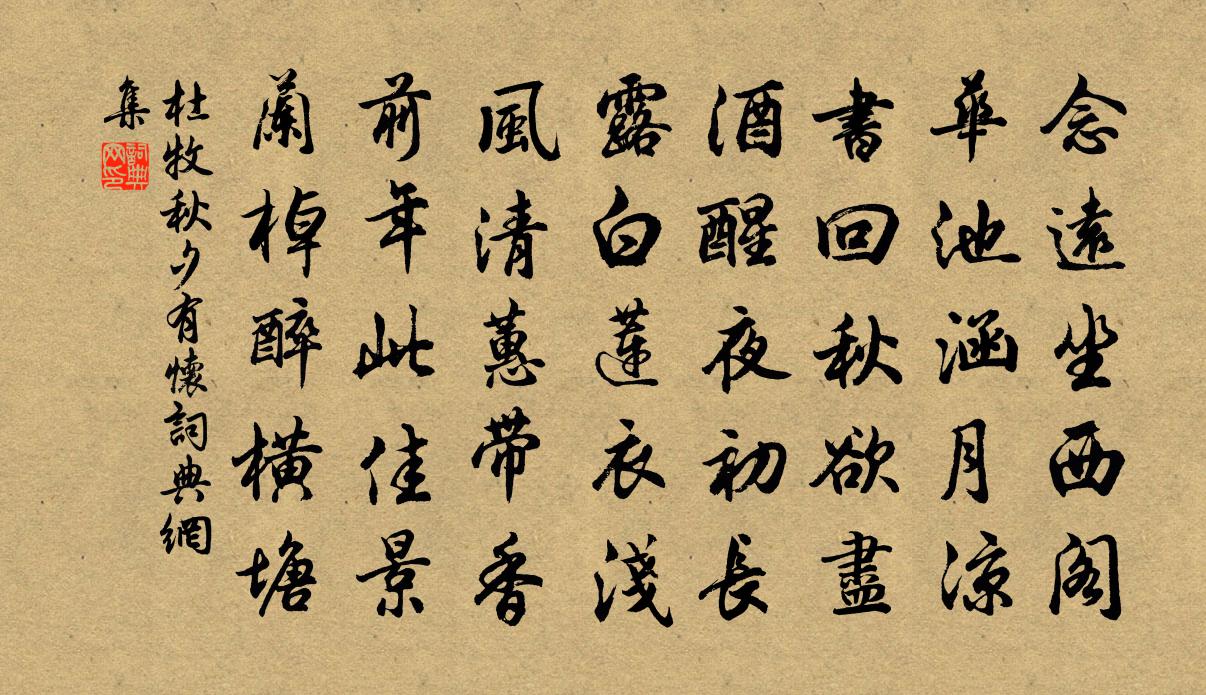 念遠坐西閣
華池涵月凉
書回秋欲盡
酒醒夜初長
露白蓮衣淺
風清蕙带香
前年此佳景
蘭棹醉橫塘
杜牧秋夕有懷詞典網
集
詞典
网印